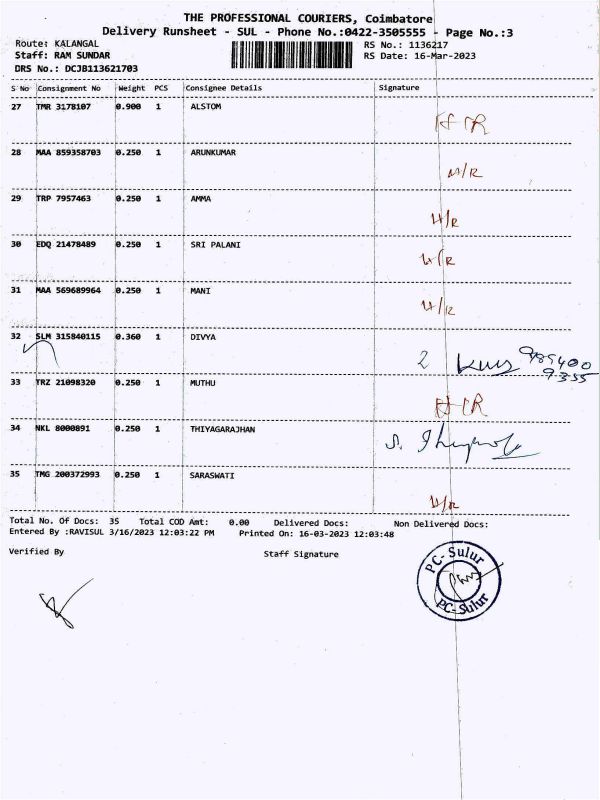 THE PROFESSIONAL COURIERS, Coimbatore
Delivery Runsheet - SUL - Phone No.:0422-3505555 - Page No.:3
Route: KALANGAL RS No.: 1136217
Staff: RAM SUNDAR RS Date: 16-Mar-2023
DRS No.: DCJB113621703
S No Consignment No Weight PCS Consignee Details Signature
27 TMR 3178107 0.900 1 ALSTOM
28 MAA 859358703 0.250 1 ARUNKUMAR
29 TRP 7957463 0.250 1 AMMA
H/R
30 EDQ 21478489 0.250 1 SRI PALANI
31 MAA 569689964 0.250 1 MANI
H/R
32 SLM 315840115 0.360 1 DIVYA
33 TRZ 21098320 0.250 1 MUTHU
34 NKL 8000891 0.250 1 THIYAGARAJHAN
35 TMG 200372993 0.250 1 SARASWATI
H/R
Total No. Of Docs: 35 Total COD Amt: 0.00 Delivered Docs: Non Delivered Docs:
Entered By :RAVISUL 3/16/2023 12:03:22 PM Printed On: 16-03-2023 12:03:48
Verified By Staff Signature
PC-Sulur
PC-Sulur